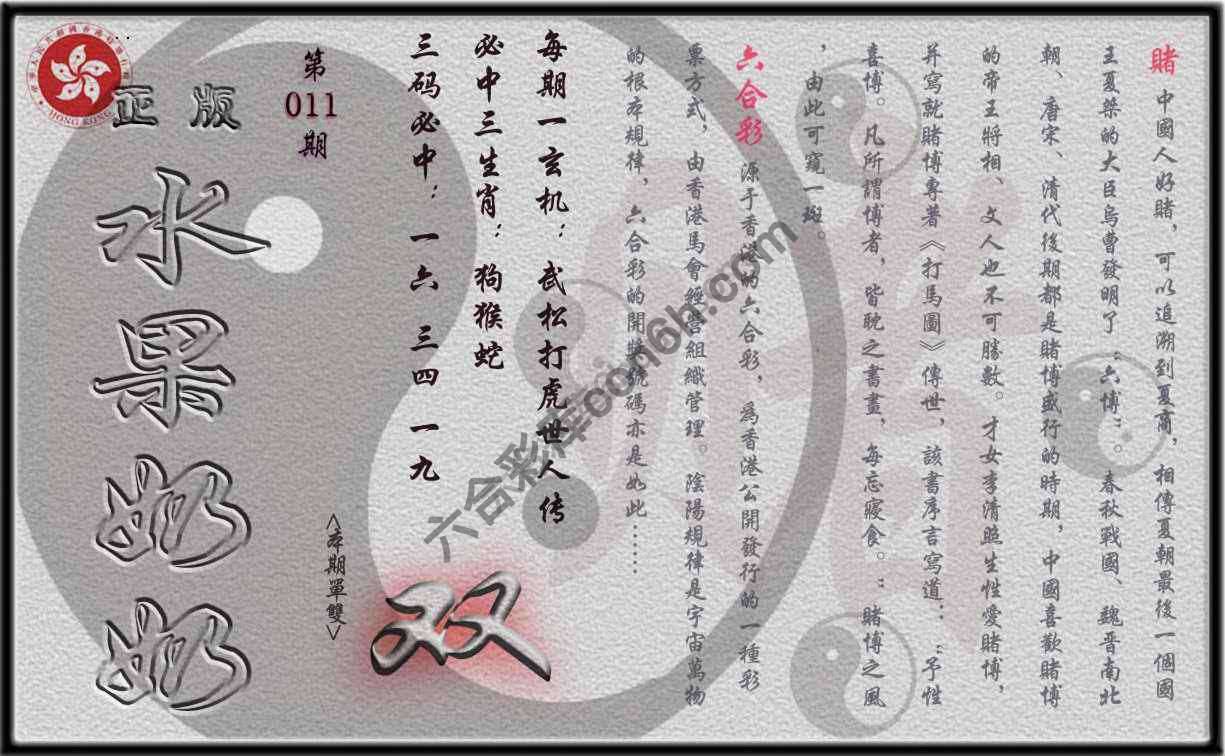 賭 中國人好賭，可以追溯到夏商，相傳夏朝最後一個國
王夏桀的大臣烏曹發明了“六博”。春秋戰國、魏晋南北
朝、唐宋、清代後期都是賭博盛行的時期，中國喜歡賭博
的帝王將相、文人也不可勝數。才女李清照生性愛賭博，
并寫就賭博專著《打馬圖》傳世，該書序言寫道：“予性
喜博。凡所謂博者，皆耽之書畫，每忘寢食。”賭博之風
，由此可窺一斑。
六合彩 源于香港的六合彩，為香港公開發行的一種彩
票方式，由香港馬會經營組織管理。陰陽規律是宇宙萬物
的根本規律，六合彩的開獎號碼亦是如此……
每期一玄机：武松打虎世人传
必中三生肖：狗猴蛇
三码必中：一六 三四 一九
第
011
期
<本期單雙>
双
正版
水果奶奶
六合彩庫con6h.com
HONG KONG